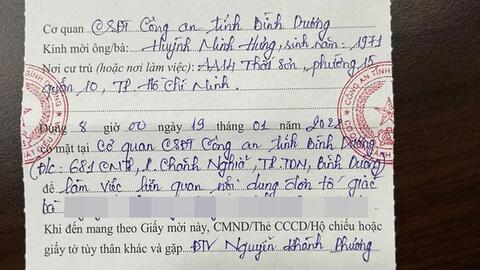 Cơ quan CSĐT Công an tỉnh Bình Dương
Kính mời ông/bà: Huỳnh Minh Hưng, sinh năm: 1971
Nơi cư trú (hoặc nơi làm việc): Thái Sơn, phường 15
quận 10, TP. Hồ Chí Minh.
Đúng 8 giờ 00 ngày 19 tháng 01 năm
có mặt tại Cơ quan CSĐT Công an tỉnh Bình Dương
Đ/c: 681 CMT8, P. Chánh Nghĩa, TP.TDM, Bình Dương
để làm việc liên quan nội dung đơn tố giác
bà
Khi đến mang theo Giấy mời này, CMND/Thẻ CCCD/Hộ chiếu hoặc
giấy tờ tùy thân khác và gặp ĐTV Nguyễn Khánh Phương